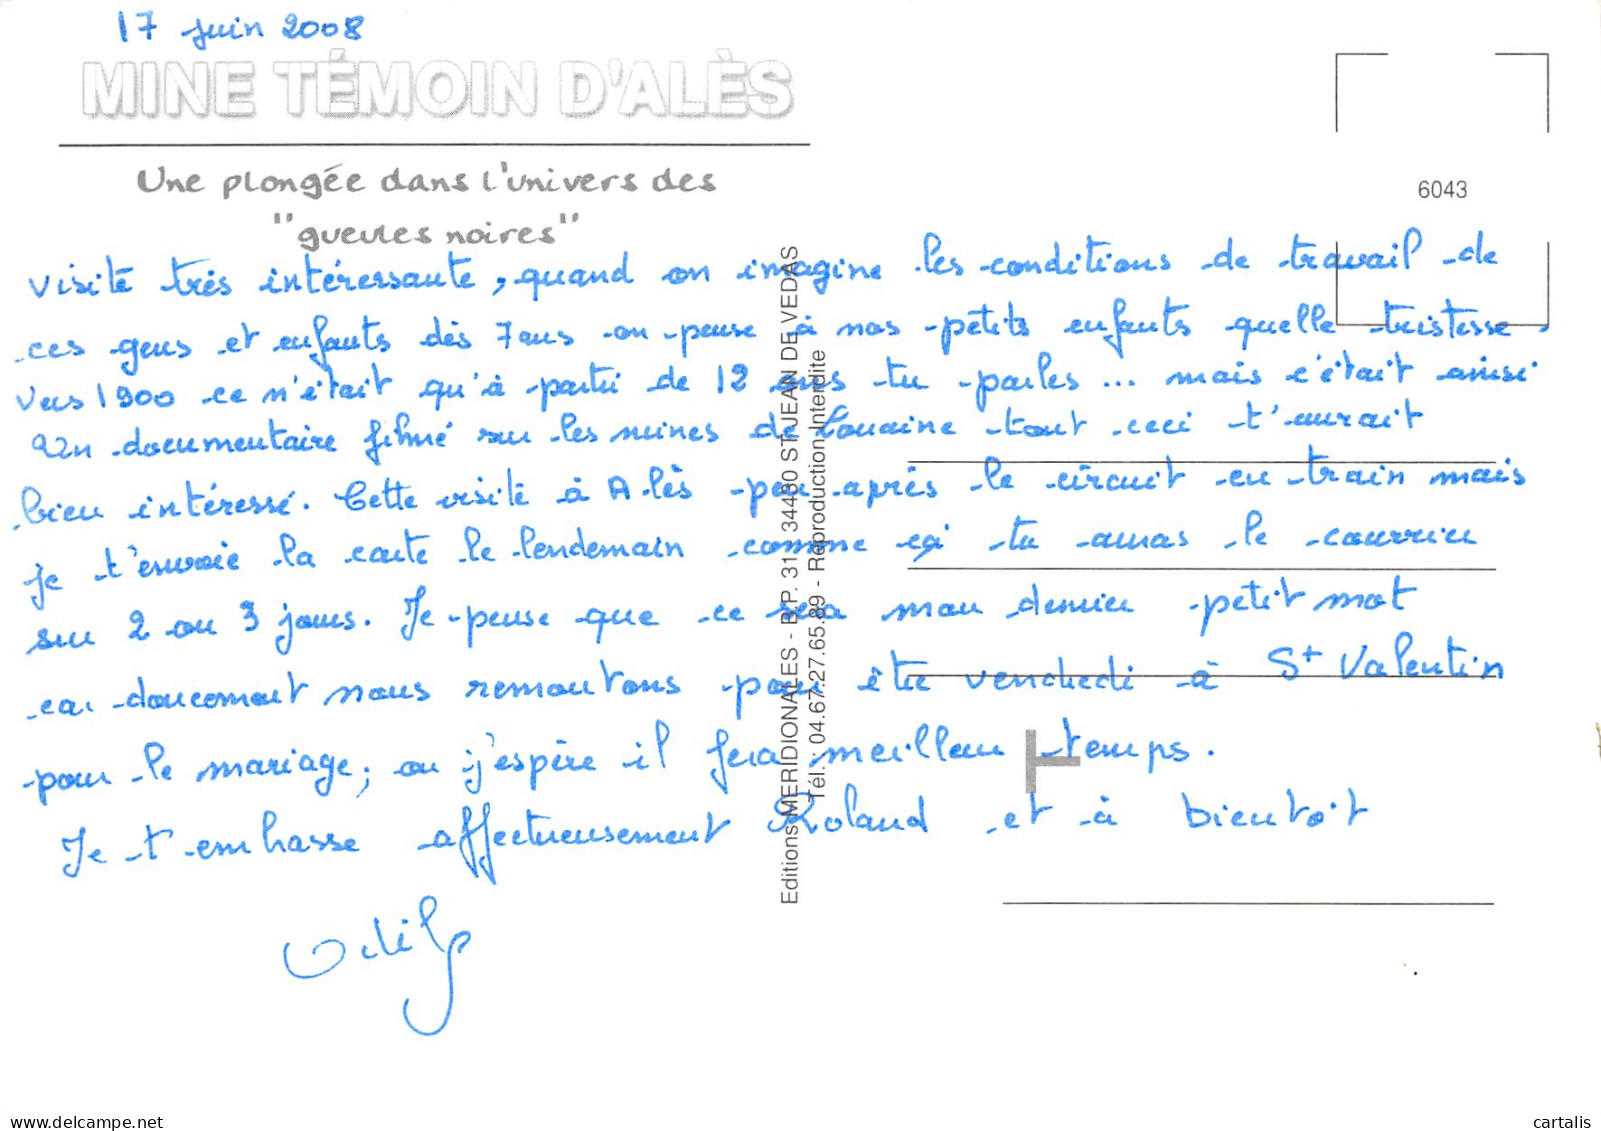 17 juin 2008
MINE TÉMOIN D'ALÈS
Une plongée dans l'univers des
"gueules noires"
6043
visite très intéressante, quand on imagine les conditions de travail de
ces gens et enfants dès 7 ans on pense à nos petits enfants quelle tristesse.
Vers 1900 ce n'était qu'à partir de 12 ans tu parles ... mais c'était ainsi
Un documentaire filmé sur les mines de Lorraine tout ceci t'aurait
bien intéressé. Cette visite à Alès pour après le circuit en train mais
je t'envoie la carte le lendemain comme ça tu auras le courrier
sur 2 ou 3 jours. Je pense que ce sera mon dernier petit mot
car doucement nous remontons pour être vendredi à St Valentin
pour le mariage, ou j'espère il fera meilleur temps.
Je t'embrasse affectueusement Roland et à bientôt
Odile
Editions MERIDIONALES - B.P. 31 34430 ST JEAN DE VEDAS
Tél. : 04.67.27.65.89 - Reproduction Interdite
delcampe.net
cartalis